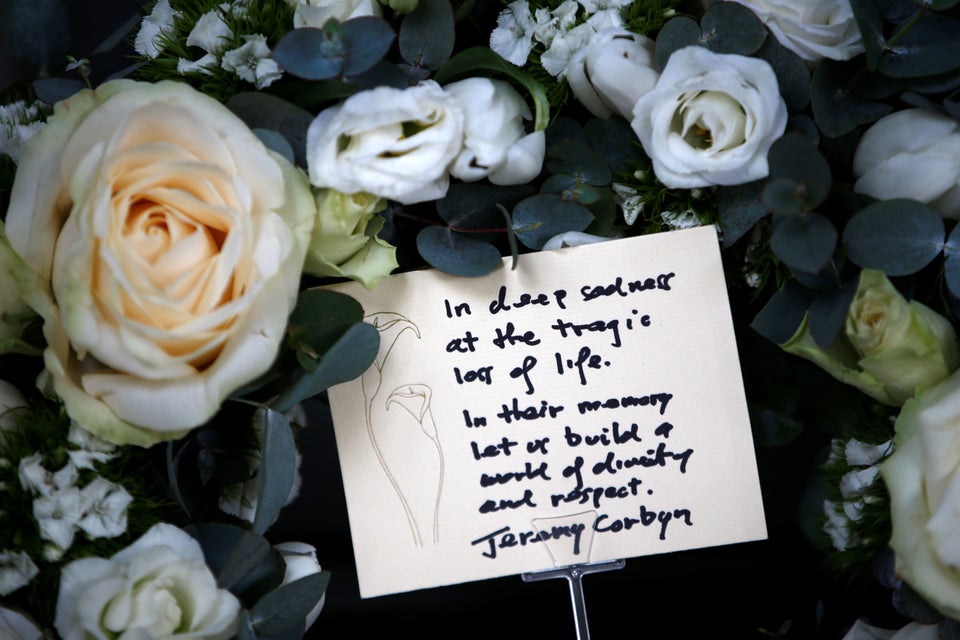 In deep sadness
at the tragic
loss of life.
In their memory
let us build a
world of dignity
and respect.
Jeremy Corbyn